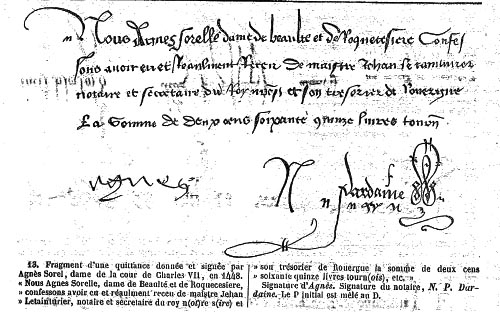 Nous Agnes sorelle dame de beaulté et de Roquecesiere Confes
sons avoir eu et Reaulment Receu de maistre Jehan le tainturier
notaire et secretaire du Roy nres et son tresorier de Rouergue
La Somme de deux cens soixante quinze livres tourn
Agnes
N Pdardaine
13. Fragment d'une quittance donnée et signée par
Agnès Sorel, dame de la cour de Charles VII, en 1448.
« Nous Agnes Sorelle, dame de Beaulté et de Roquecesiere,
» confessons avoir eu et réaulment receu de maistre Jehan
» Letainturier, notaire et secrétaire du roy n(ot)re s(ire) et
» son trésorier de Rouergue la somme de deux cens
» soixante quinze livres tourn(ois), etc. »
Signature d'Agnès. Signature du notaire, N. P. Dar-
daine. Le P initial est mêlé au D.